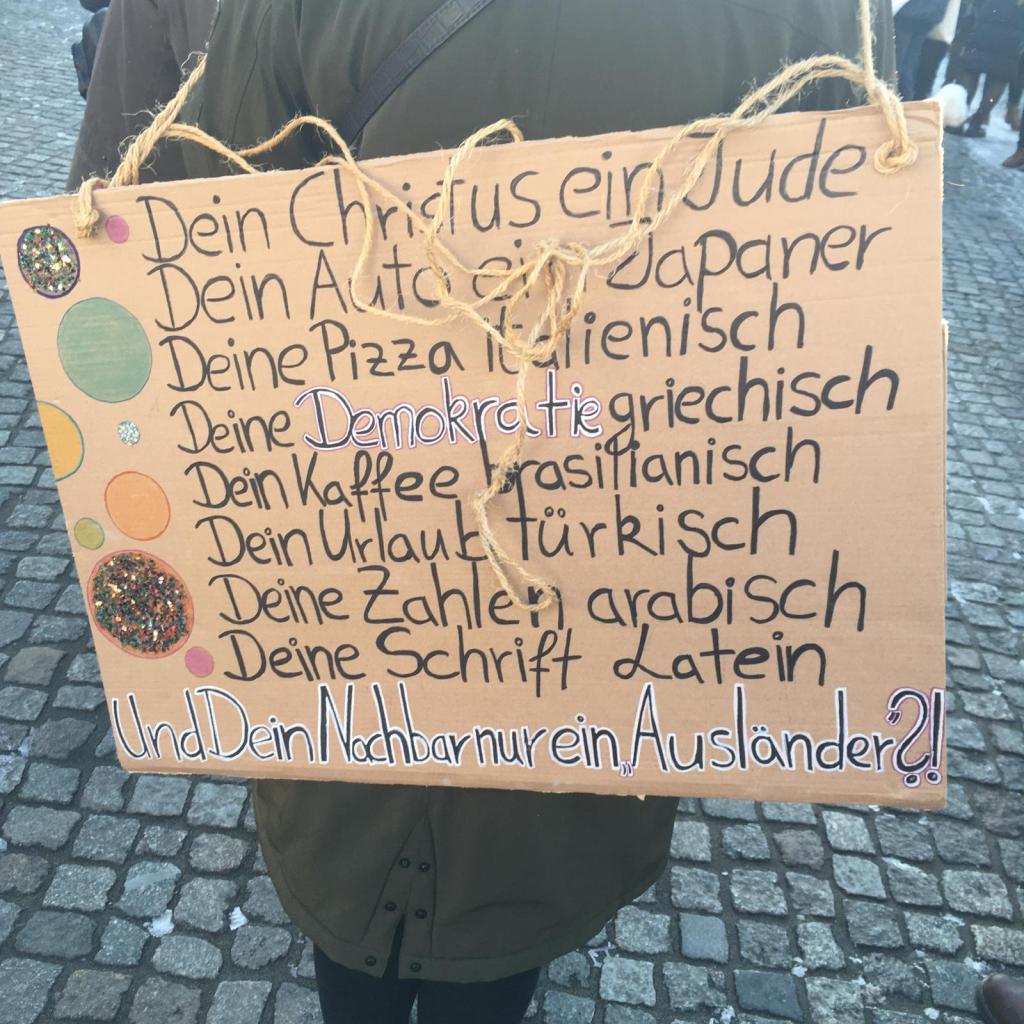 Dein Christus ein Jude
Dein Auto ein Japaner
Deine Pizza italienisch
Deine Demokratie griechisch
Dein Kaffee brasilianisch
Dein Urlaub türkisch
Deine Zahlen arabisch
Deine Schrift Latein
Und Dein Nachbar nur ein „Ausländer"?!